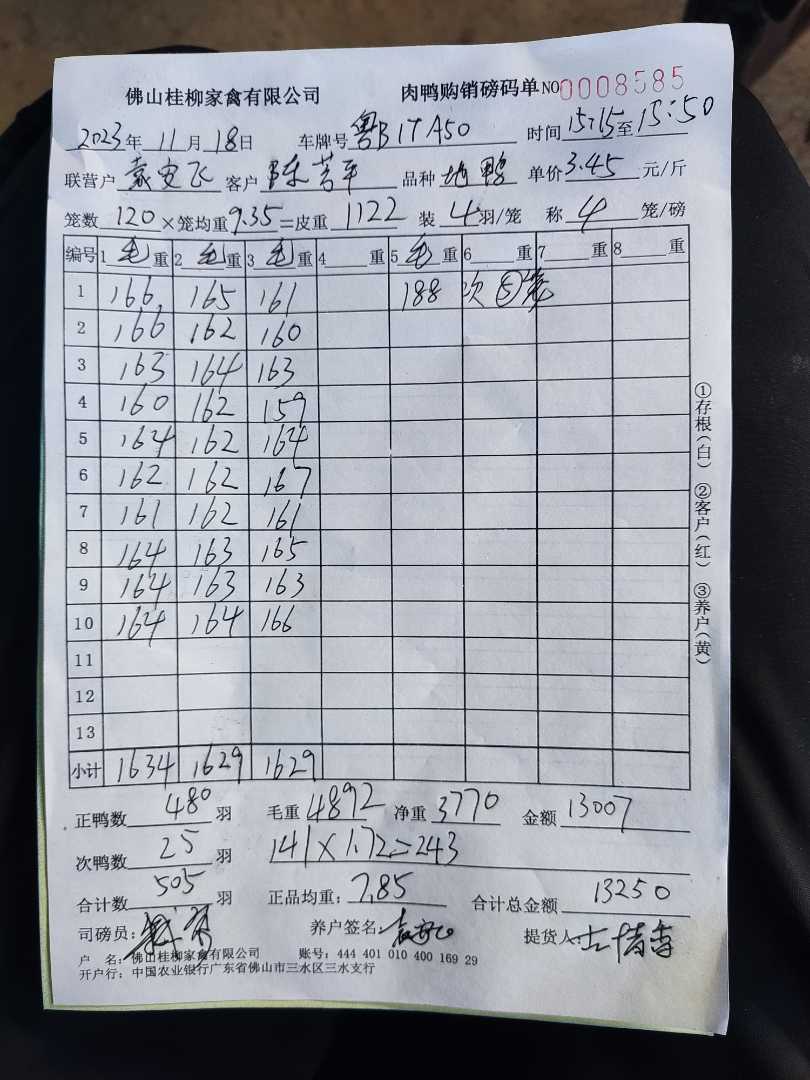 佛山桂柳家禽有限公司 肉鸭购销磅码单 NO 0008585
2023年 11月 18日 车牌号 粤B1TA50 时间 15:15至 15:50
联营户 袁安飞 客户 陈芳平 品种 地鸭 单价 3.45 元/斤
笼数 120 ×笼均重 9.35 =皮重 1122 装 4 羽/笼 称 4 笼/磅
编号 1 毛 重 2 毛 重 3 毛 重 4 重 5 毛 重 6 重 7 重 8 重
1 166 165 161 188 次⑤笼
2 166 162 160
3 163 164 163
4 160 162 159
5 164 162 164
6 162 162 167
7 161 162 161
8 164 163 165
9 164 163 163
10 164 164 166
11
12
13
小计 1634 1629 1629
正鸭数 480 羽 毛重 4892 净重 3770 金额 13007
次鸭数 25 羽 141×1.72=243
合计数 505 羽 正品均重: 7.85 合计总金额 13250
司磅员: 养户签名: 提货人:
户 名: 佛山桂柳家禽有限公司 账号: 444 401 010 400 169 29
开户行: 中国农业银行广东省佛山市三水区三水支行
①存根(白) ②客户(红) ③养户(黄)